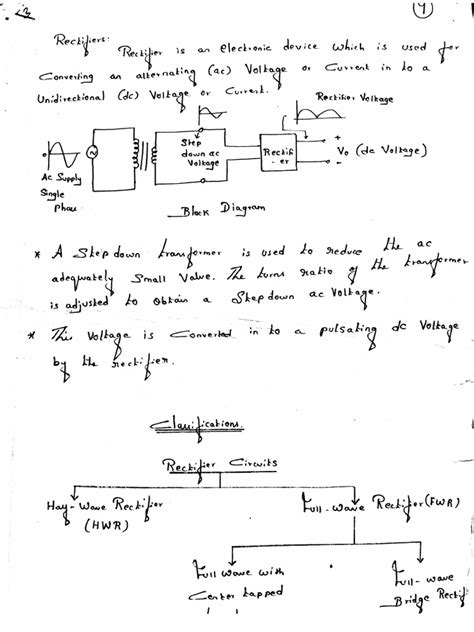 4
Rectifiers:
Rectifier is an electronic device which is used for
Converting an alternating (ac) Voltage or Current in to a
Unidirectional (dc) Voltage or Current.
Rectifier Voltage
+
Step
down ac
Voltage
Rectifi
-er
Vo (dc Voltage)
-
Ac Supply
Single
phase
Block Diagram
* A Step down transformer is used to reduce the ac
adequately Small Value. The turns ratio of the transformer
is adjusted to obtain a Step down ac Voltage.
* This Voltage is Converted in to a pulsating dc Voltage
by the rectifier.
Classifications.
Rectifier Circuits
Half-Wave Rectifier
(HWR)
Full-wave Rectifier (FWR)
Full wave with
Center tapped
Full-wave
Bridge Rectifi